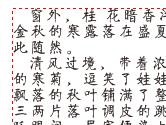 窗外，桂花暗香浮
金秋的寒露落在盛夏
此随然。
清风过境，带着浓
的寒菊，逗笑了娃娃
飘落的秋叶铺满了整
三两片落叶调皮的跳